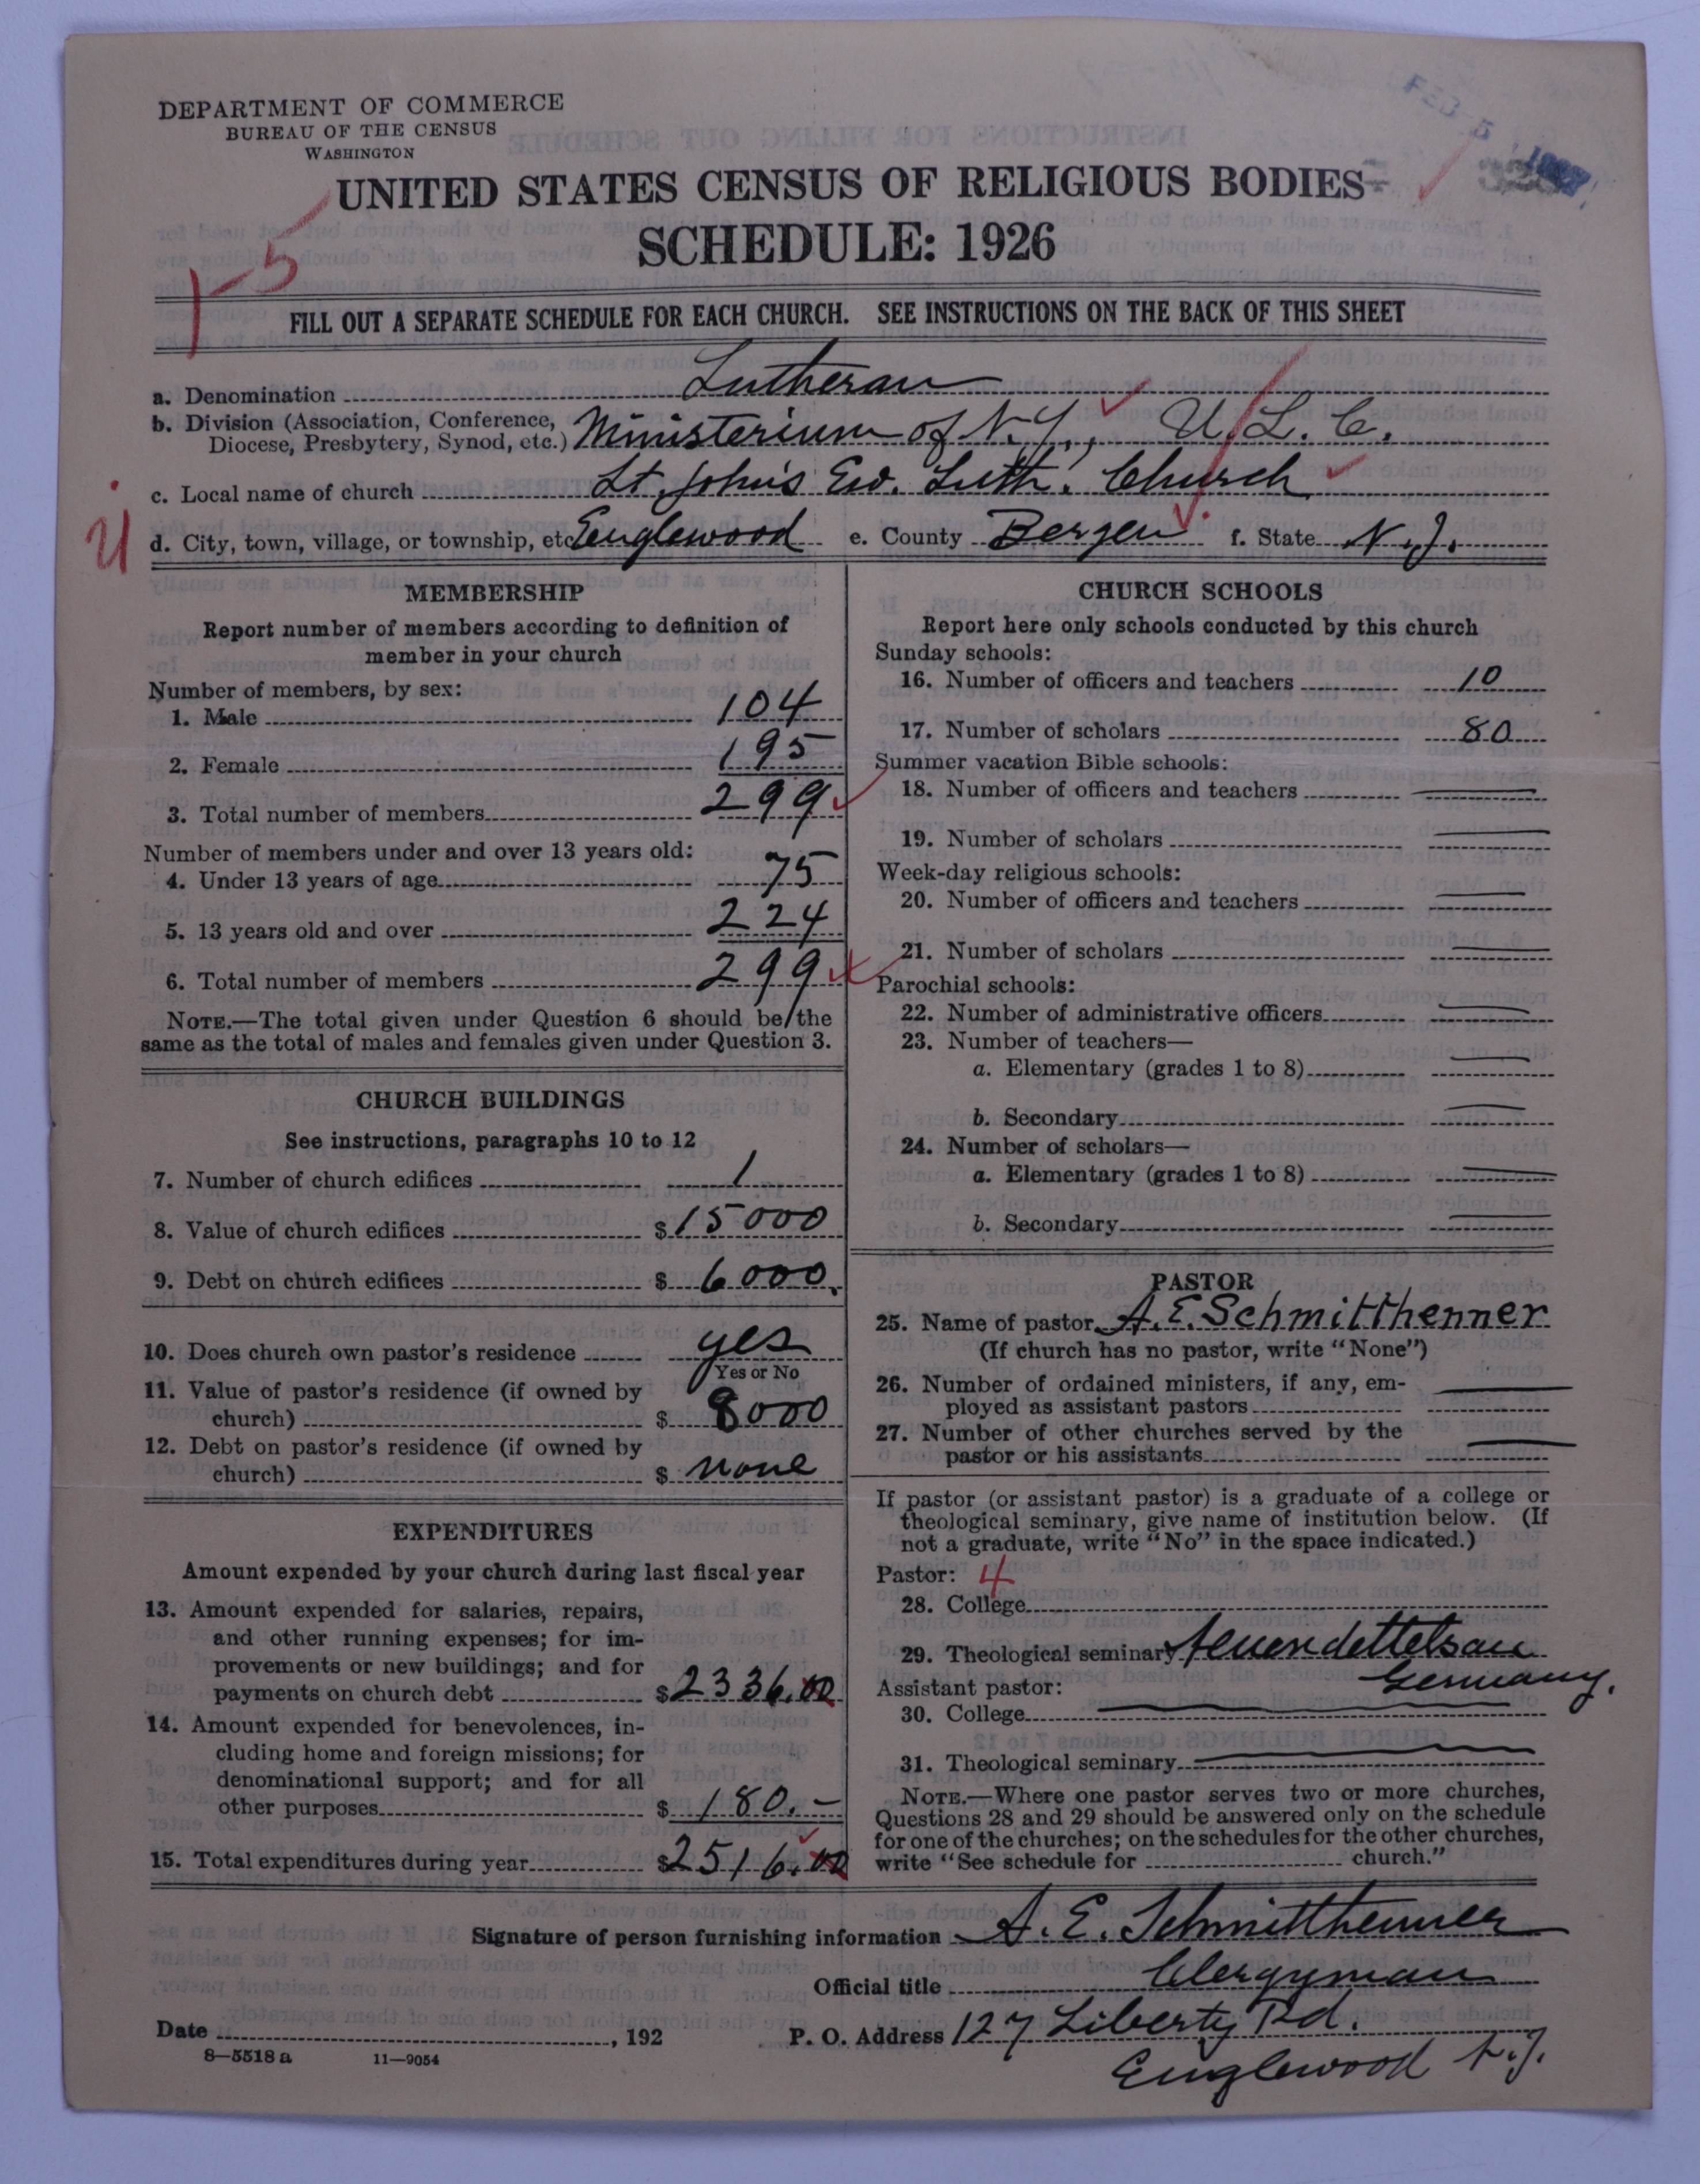 DEPARTMENT OF COMMERCE
BUREAU OF THE CENSUS
WASHINGTON
FEB 5 1927
UNITED STATES CENSUS OF RELIGIOUS BODIES
SCHEDULE: 1926
5
FILL OUT A SEPARATE SCHEDULE FOR EACH CHURCH. SEE INSTRUCTIONS ON THE BACK OF THIS SHEET
a. Denomination Lutheran
b. Division (Association, Conference,
Diocese, Presbytery, Synod, etc.) Ministerium of N.Y., U.L.C.
c. Local name of church St. John's Ev. Luth. Church
d. City, town, village, or township, etc. Englewood e. County Bergen f. State N.J.
MEMBERSHIP
Report number of members according to definition of
member in your church
Number of members, by sex:
1. Male 104
2. Female 195
3. Total number of members 299
Number of members under and over 13 years old:
4. Under 13 years of age 75
5. 13 years old and over 224
6. Total number of members 299
NOTE.—The total given under Question 6 should be the
same as the total of males and females given under Question 3.
CHURCH BUILDINGS
See instructions, paragraphs 10 to 12
7. Number of church edifices 1
8. Value of church edifices $15000
9. Debt on church edifices $6000.
10. Does church own pastor's residence yes
Yes or No
11. Value of pastor's residence (if owned by
church) $8000
12. Debt on pastor's residence (if owned by
church) $ none
EXPENDITURES
Amount expended by your church during last fiscal year
13. Amount expended for salaries, repairs,
and other running expenses; for im-
provements or new buildings; and for
payments on church debt $2336.00
14. Amount expended for benevolences, in-
cluding home and foreign missions; for
denominational support; and for all
other purposes $180.-
15. Total expenditures during year $2516.00
CHURCH SCHOOLS
Report here only schools conducted by this church
Sunday schools:
16. Number of officers and teachers 10
17. Number of scholars 80
Summer vacation Bible schools:
18. Number of officers and teachers
19. Number of scholars
Week-day religious schools:
20. Number of officers and teachers
21. Number of scholars
Parochial schools:
22. Number of administrative officers
23. Number of teachers—
a. Elementary (grades 1 to 8)
b. Secondary
24. Number of scholars—
a. Elementary (grades 1 to 8)
b. Secondary
PASTOR
25. Name of pastor A.E. Schmitthenner
(If church has no pastor, write "None")
26. Number of ordained ministers, if any, em-
ployed as assistant pastors
27. Number of other churches served by the
pastor or his assistants
If pastor (or assistant pastor) is a graduate of a college or
theological seminary, give name of institution below. (If
not a graduate, write "No" in the space indicated.)
Pastor: 4
28. College
29. Theological seminary Neuendettelsau
Germany.
Assistant pastor:
30. College
31. Theological seminary
NOTE.—Where one pastor serves two or more churches,
Questions 28 and 29 should be answered only on the schedule
for one of the churches; on the schedules for the other churches,
write "See schedule for church."
Signature of person furnishing information A. E. Schmitthenner
Official title Clergyman
Date , 192
P. O. Address 127 Liberty Rd.
Englewood N.J.
8—5518 a 11—9054